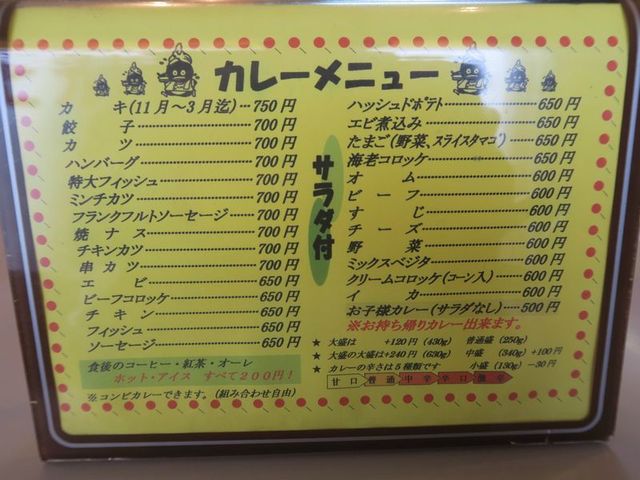 カレーメニュー
カキ(11月〜3月迄)……750円
餃子……700円
カツ……700円
ハンバーグ……700円
特大フィッシュ……700円
ミンチカツ……700円
フランクフルトソーセージ……700円
焼ナス……700円
チキンカツ……700円
串カツ……700円
エビ……650円
ビーフコロッケ……650円
チキン……650円
フィッシュ……650円
ソーセージ……650円
サラダ付
ハッシュドポテト……650円
エビ煮込み……650円
たまご(野菜、スライスタマゴ)……650円
海老コロッケ……650円
オム……600円
ビーフ……600円
すじ……600円
チーズ……600円
野菜……600円
ミックスベジタ……600円
クリームコロッケ(コーン入)……600円
イカ……600円
お子様カレー(サラダなし)……500円
※お持ち帰りカレー出来ます。
食後のコーヒー・紅茶・オーレ
ホット・アイス すべて200円!
※コンビカレーできます。(組み合わせ自由)
★ 大盛は +120円(430g) 普通盛(250g)
★ 大盛の大盛は+240円(630g) 中盛(340g)+100円
★ カレーの辛さは5種類です 小盛(130g)−30円
甘口 普通 中辛 辛口 激辛